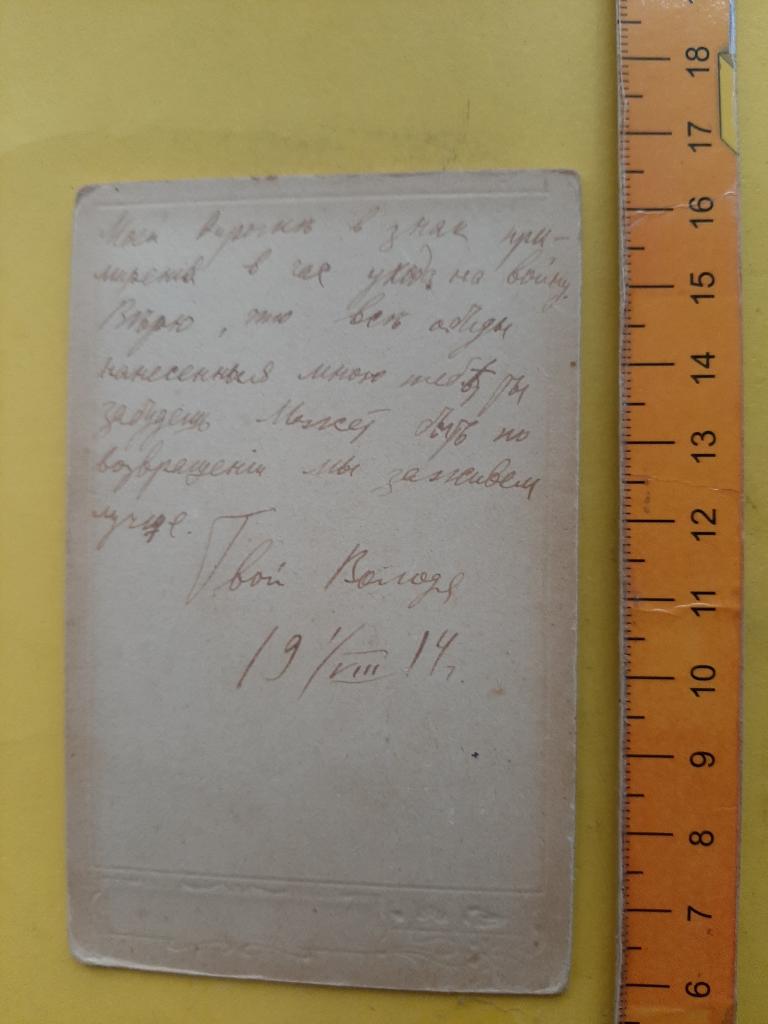 в знак при-
миренія в час ухода на войну.
Вѣрю, что всѣ обиды
нанесенныя мною тебѣ ты
забудешь Может быть по
возвращеніи мы заживем
лучше.
Твой Володя
19 1/VIII 14 г.
18
17
16
15
14
13
12
11
10
9
8
7
6